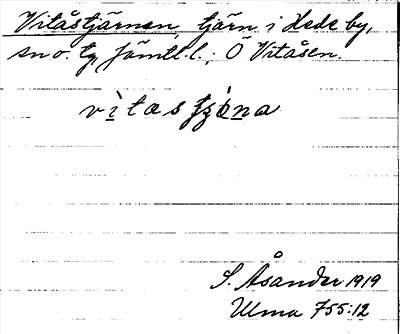 Vitåstjärnen, tjärn i Hede by,
sn o. tg Jämtl. l.; Ö Vitåsen.
vìtasʃɟə̀na
S. Åsander 1919
Ulma 755:12